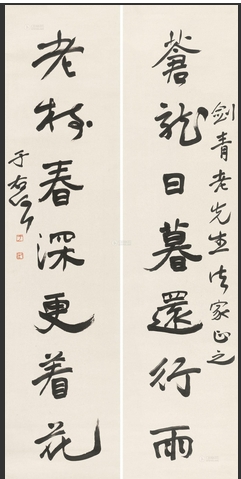 劍青老先生法家正之
蒼龍日暮還行雨
老樹春深更着花
于右任